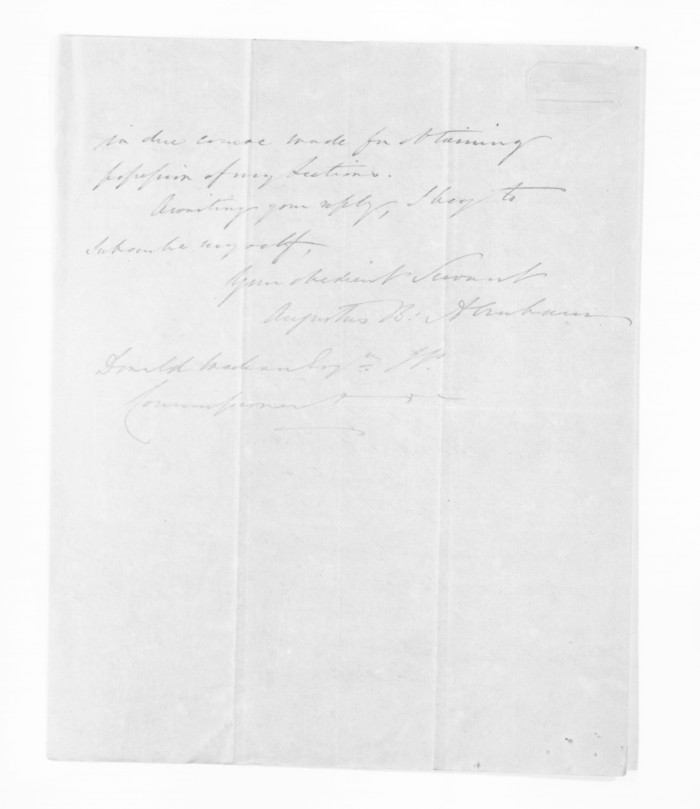 in due course made for obtaining
possession of my Sections.
Awaiting your reply, I beg to
subscribe myself,
Your obedient Servant
Augustus B. Abraham
Donald McLean Esqre J.P.
Commissioner